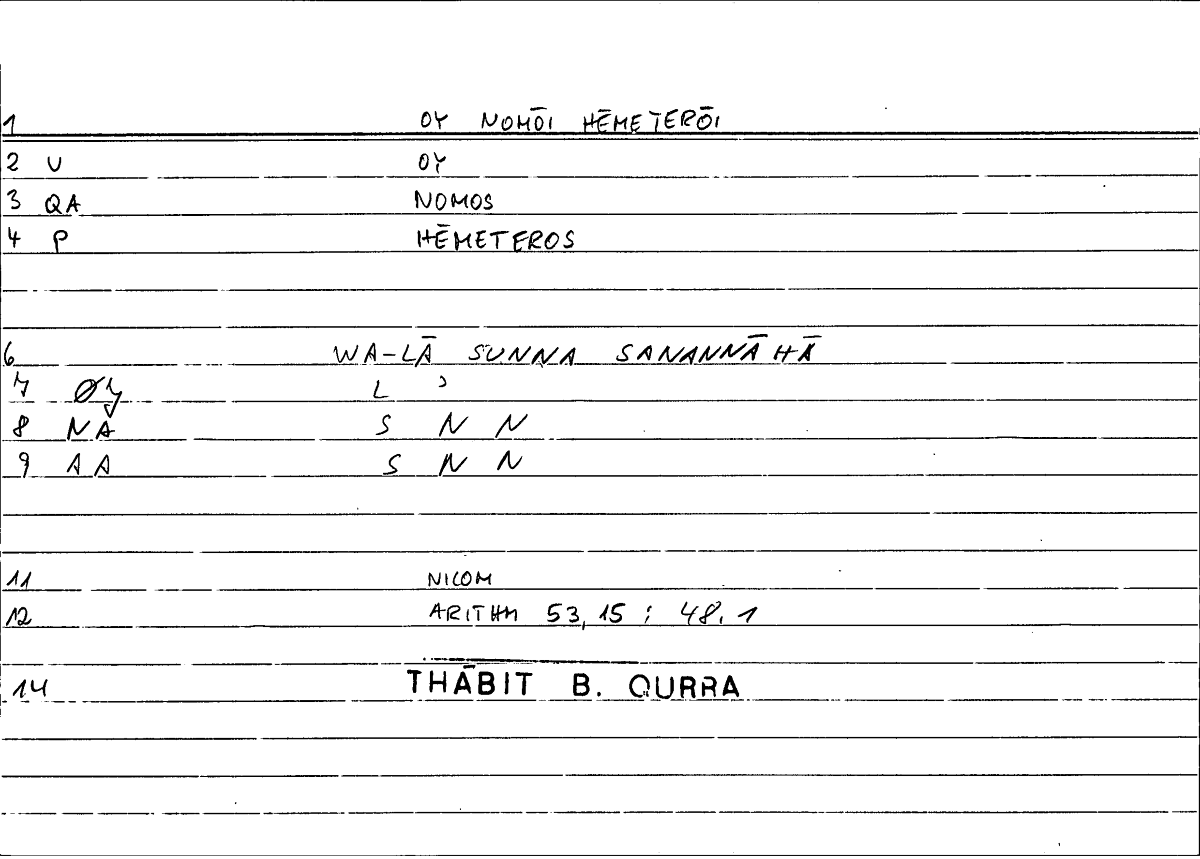 1 OY NOMŌI HĒMETERŌI
2 U OY
3 QA NOMOS
4 P HĒMETEROS
6 WA-LĀ SUNNA SANANNĀHĀ
7 ØY L ʾ
8 NA S N N
9 AA S N N
11 NICOM
12 ARITHM 53,15 ; 48.1
14 THĀBIT B. QURRA